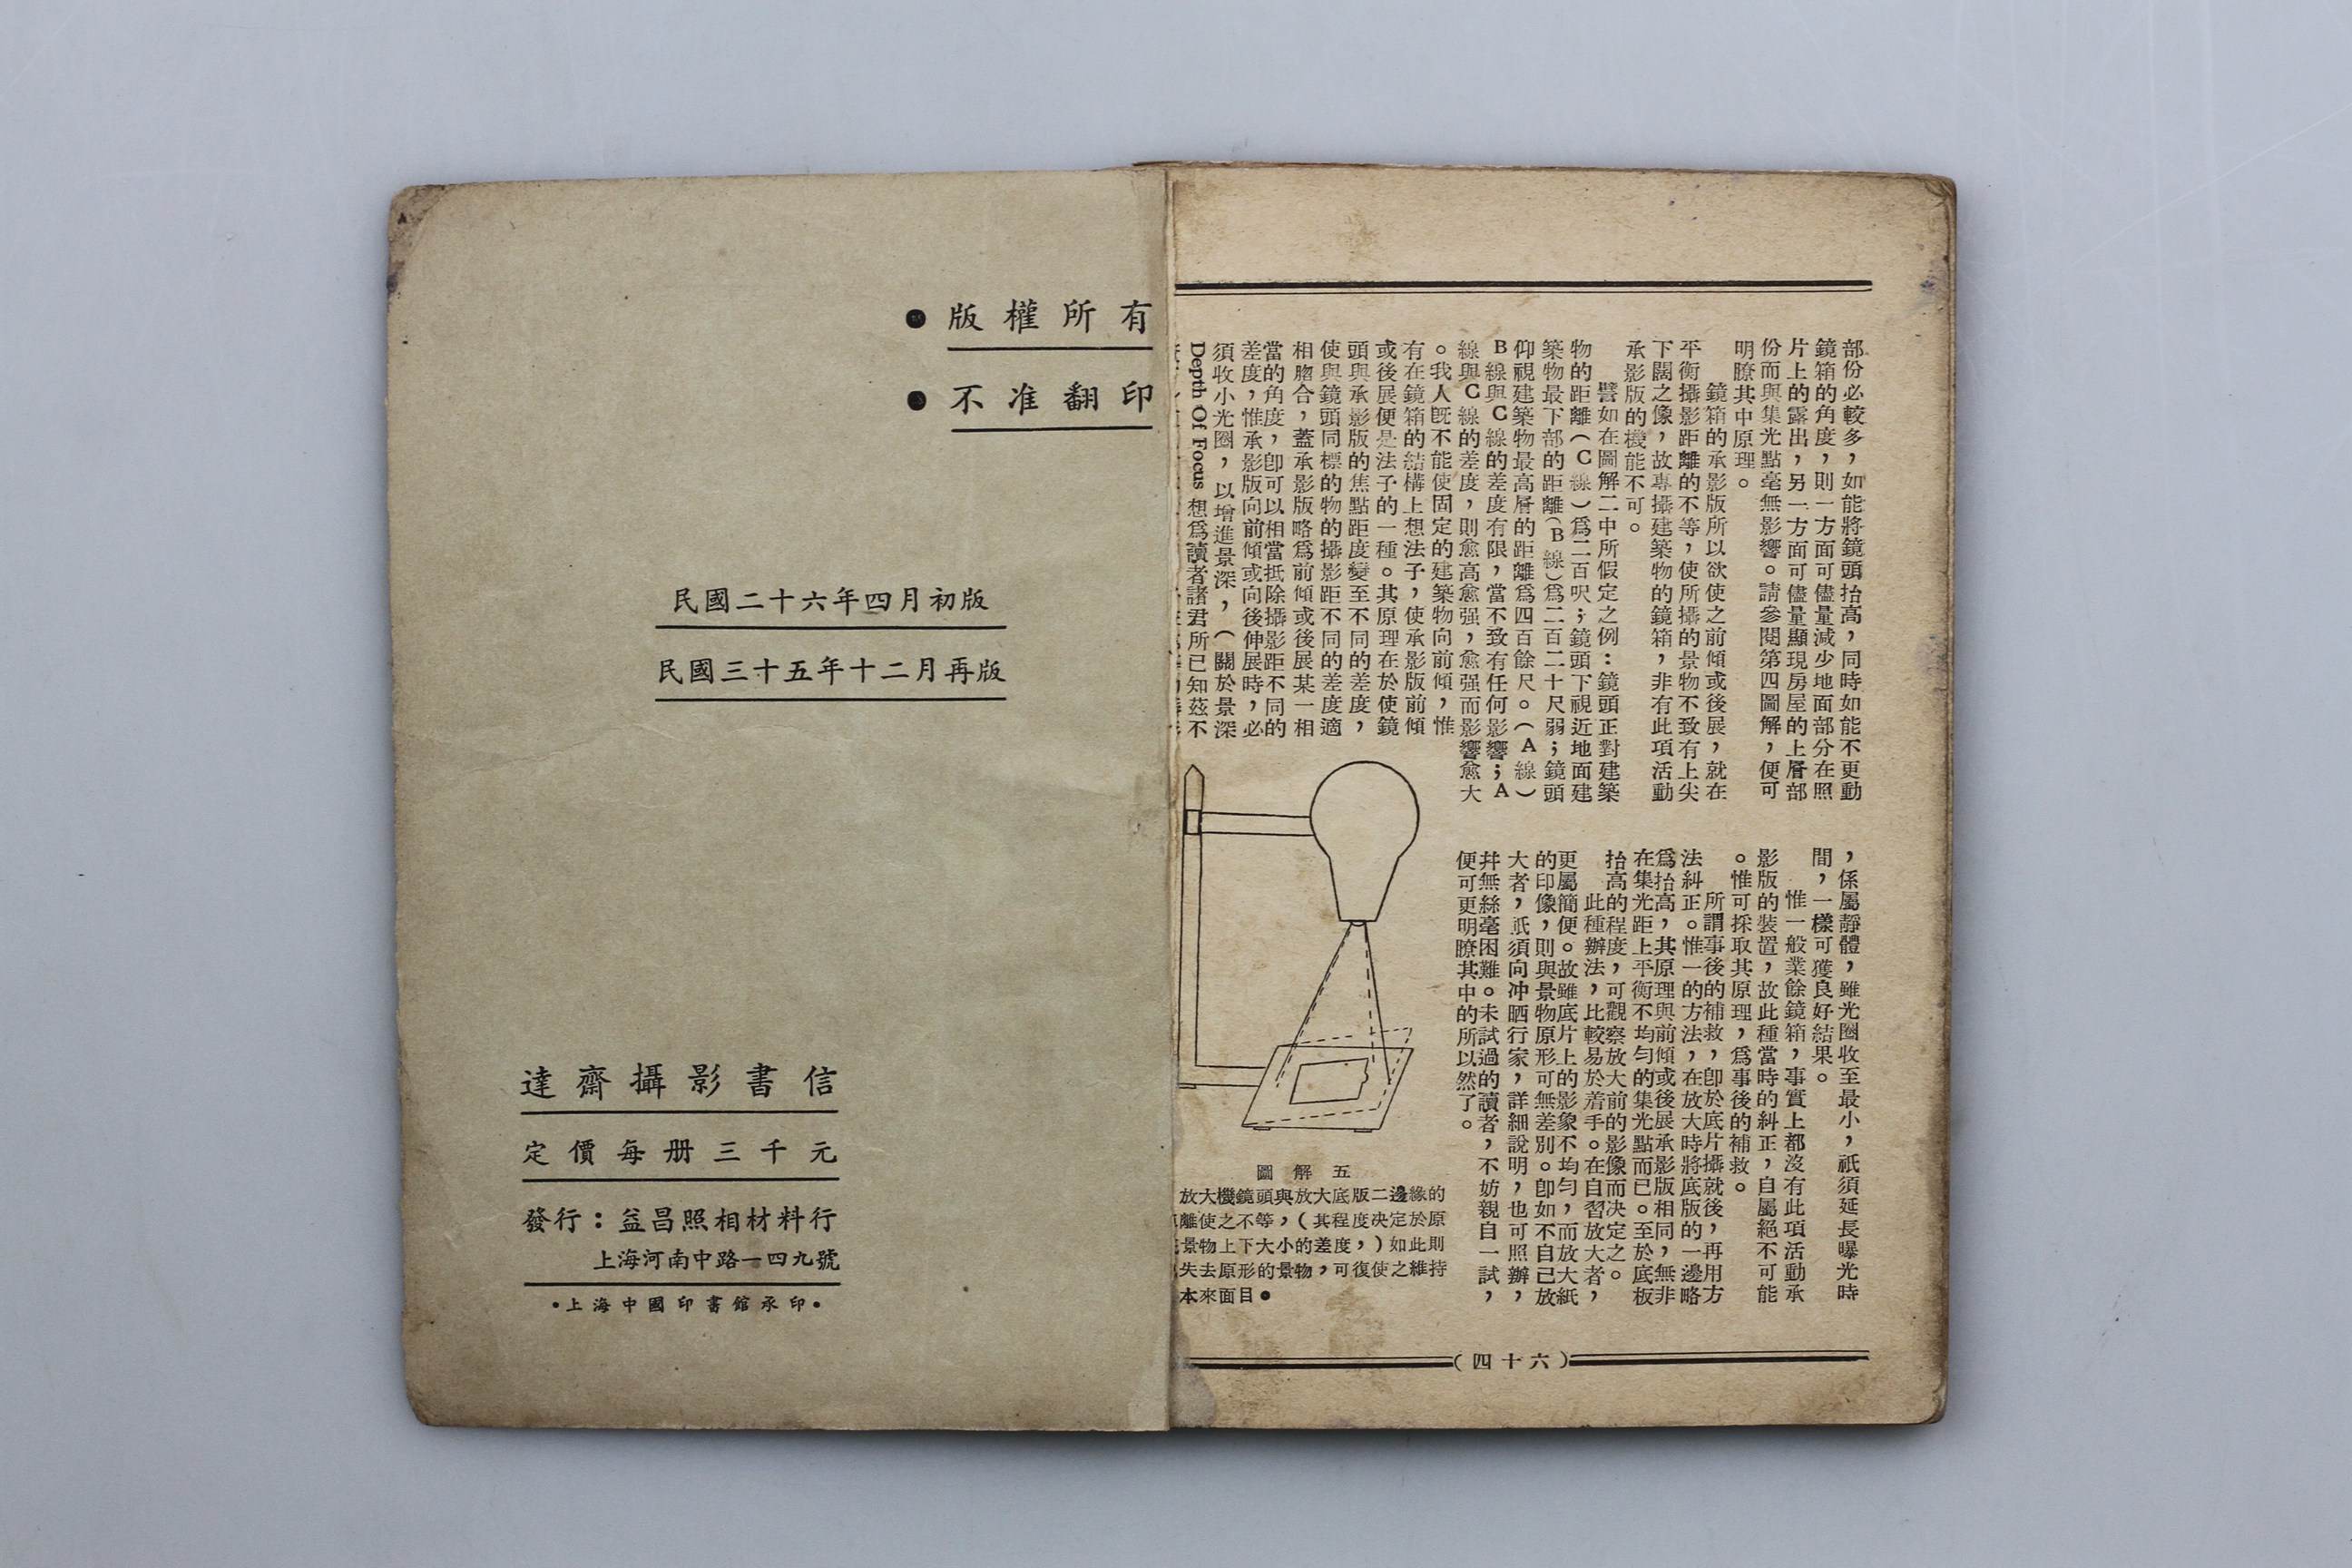 版權所有
不准翻印
民國二十六年四月初版
民國三十五年十二月再版
達齋攝影書信
定價每册三千元
發行：益昌照相材料行
上海河南中路一四九號
•上海中國印書館承印•
部份必較多，如能將鏡頭抬高，同時如能不更動
鏡箱的角度，則一方面可儘量減少地面部分在照
片上的露出，另一方面可儘量顯現房屋的上層部
份而與集光點毫無影響。請參閱第四圖解，便可
明瞭其中原理。
鏡箱的承影版所以欲使之前傾或後展，就在
平衡攝影距離的不等，使所攝的景物不致有上尖
下闊之像，故專攝建築物的鏡箱，非有此項活動
承影版的機能不可。
譬如在圖解二中所假定之例：鏡頭正對建築
物的距離（C線）爲二百呎；鏡頭下視近地面建
築物最下部的距離（B線）爲二百二十尺弱；鏡頭
仰視建築物最高層的距離爲四百餘尺。（A線）
B線與C線的差度有限，當不致有任何影響；A
線與C線的差度，則愈高愈强，愈强而影響愈大
。我人旣不能使固定的建築物向前傾，惟
有在鏡箱的結構上想法子，使承影版前傾
或後展便是法子的一種。其原理在於使鏡
頭與承影版的焦點距度變至不同的差度，
使與鏡頭同標的物的攝影距不同的差度適
相脗合，蓋承影版略爲前傾或後展某一相
當的角度，卽可以相當抵除攝影距不同的
差度，惟承影版向前傾或向後伸展時，必
須收小光圈，以增進景深，（關於景深
Depth Of Focus 想爲讀者諸君所已知茲不
，係屬靜體，雖光圈收至最小，祇須延長曝光時
間，一樣可獲良好結果。
惟一般業餘鏡箱，事實上都沒有此項活動承
影版的裝置，故此種當時的糾正，自屬絕不可能
。惟可採取其原理，爲事後的補救。
所謂事後的補救，卽於底片攝就後，再用方
法糾正。惟一的方法，在放大時將底版的一邊略
爲抬高，其原理與前傾或後展承影版相同，無非
在集光距上平衡不均勻的集光點而已。至於底板
抬高的程度，可觀察放大前的影像而決定之。
此種辦法，比較易於着手。在自習放大者，
更屬簡便。故雖底片上的影象不均勻，而放大紙
的印像，則與景物原形可無差別。卽如不自己放
大者，祇須向冲晒行家，詳細說明，也可照辦，
幷無絲毫困難。未試過的讀者，不妨親自一試，
便可更明瞭其中的所以然了。
圖解五
放大機鏡頭與放大底版二邊緣的
離使之不等，（其程度決定於原
景物上下大小的差度，）如此則
失去原形的景物，可復使之維持
本來面目●
（四十六）